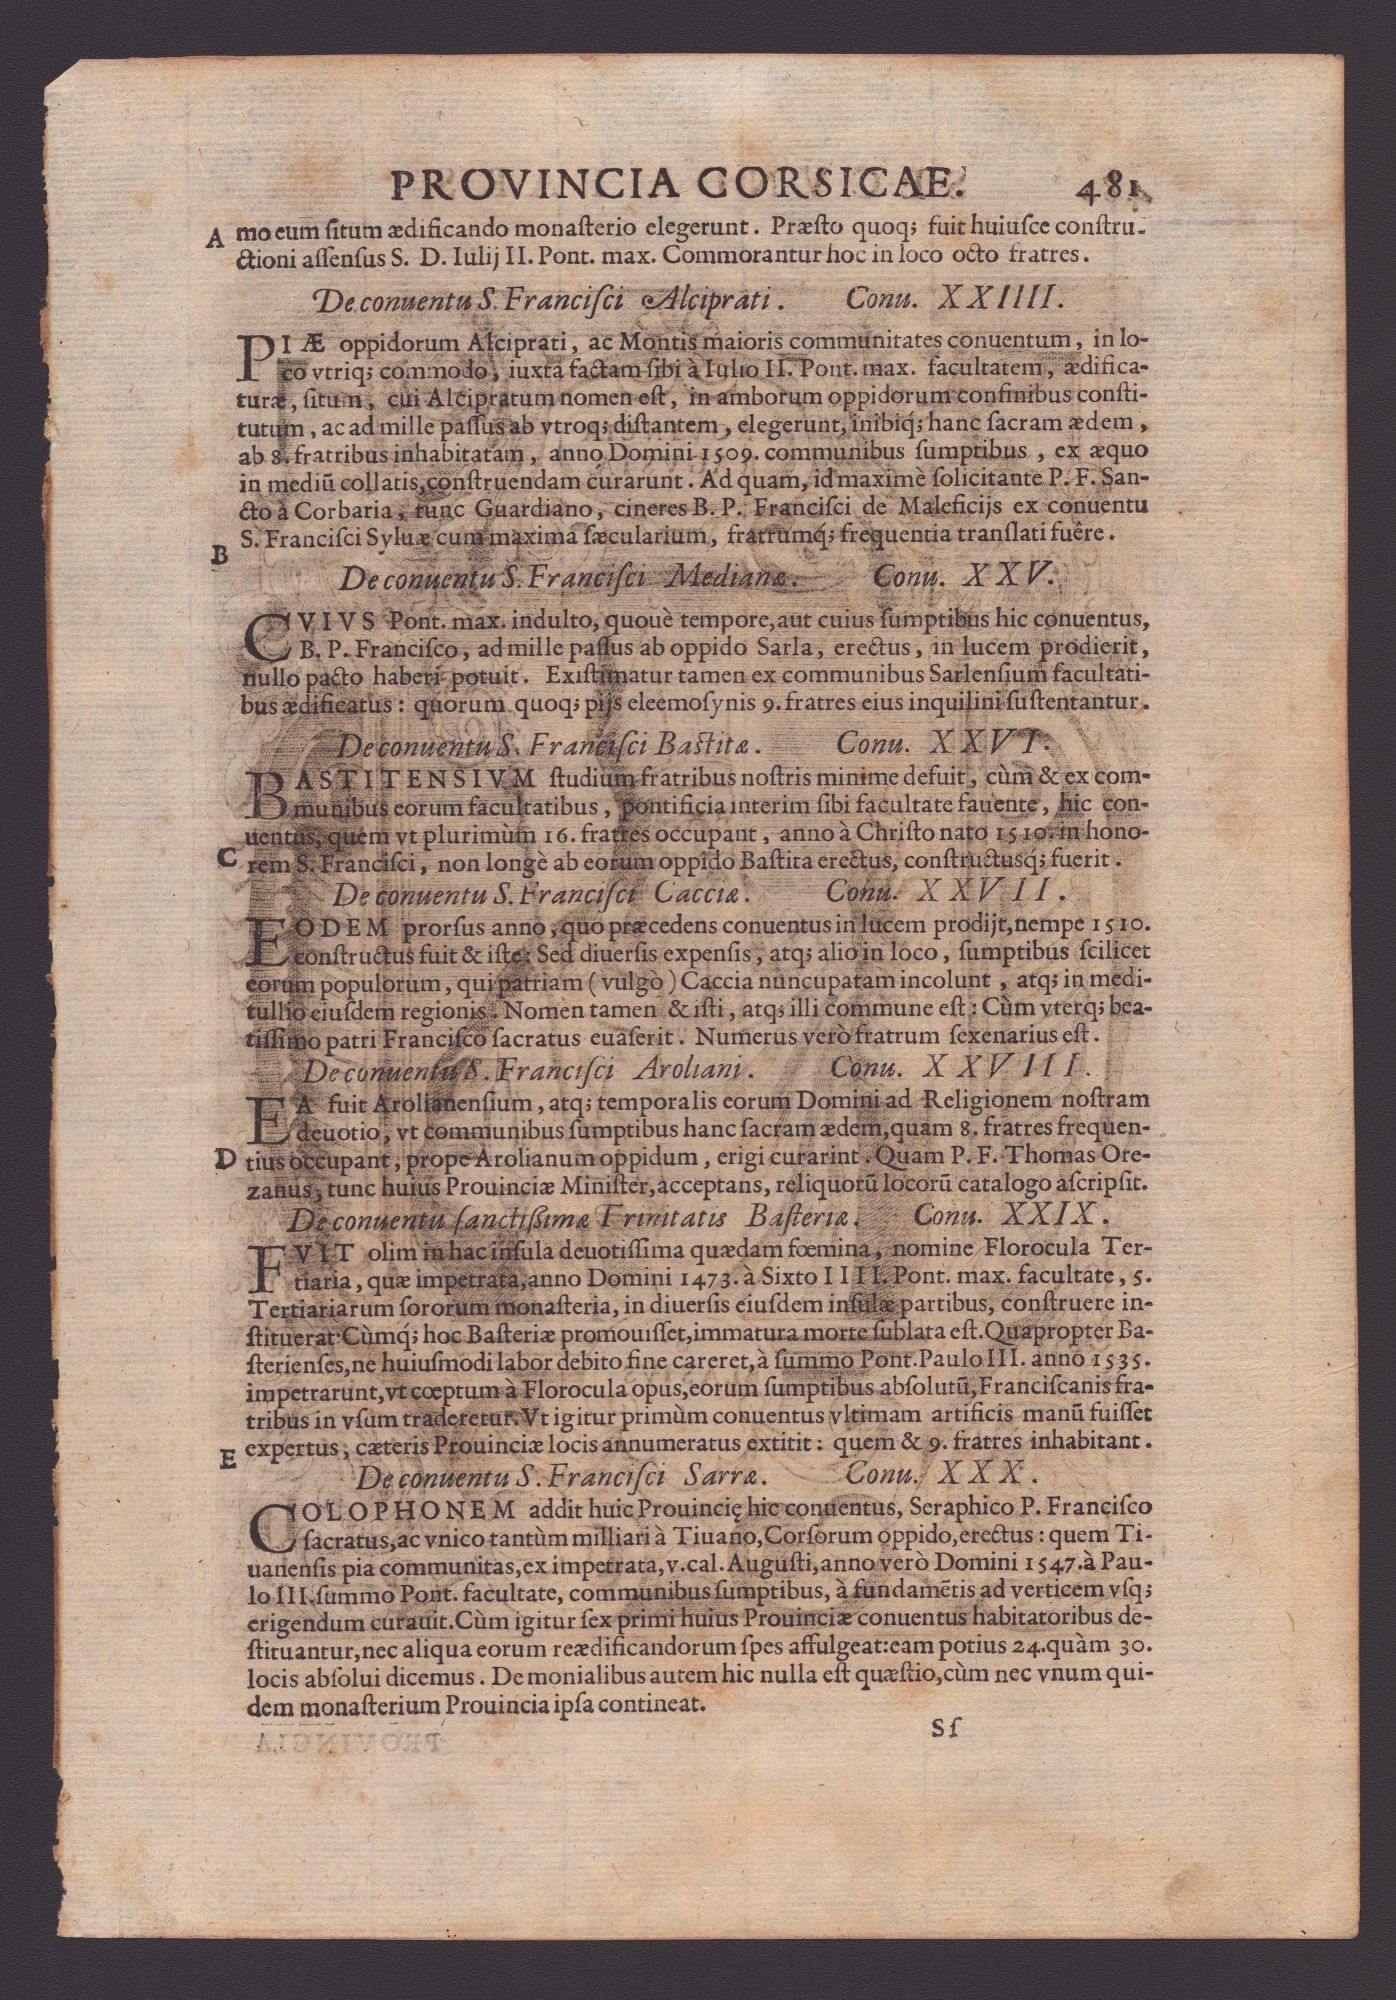 PROVINCIA CORSICAE. 481.
A mo eum ſitum ædificando monaſterio elegerunt. Præſto quoq; fuit huiuſce conſtru-
ctioni aſſenſus S. D. Iulij II. Pont. max. Commorantur hoc in loco octo fratres.
De conuentu S. Franciſci Alciprati. Conu. XXIIII.
PIÆ oppidorum Alciprati, ac Montis maioris communitates conuentum, in lo-
co vtriq; commodo, iuxta factam ſibi à Iulio II. Pont. max. facultatem, ædifica-
turæ, ſitum, cui Alcipratum nomen eſt, in amborum oppidorum confinibus conſti-
tutum, ac ad mille paſſus ab vtroq; diſtantem, elegerunt, inibiq́; hanc ſacram ædem,
ab 8. fratribus inhabitatam, anno Domini 1509. communibus ſumptibus, ex æquo
in mediũ collatis, conſtruendam curarunt. Ad quam, id maximè ſolicitante P. F. San-
cto à Corbaria, tunc Guardiano, cineres B. P. Franciſci de Maleficijs ex conuentu
S. Franciſci Syluæ cum maxima ſæcularium, fratrumq́; frequentia tranſlati fuêre.
B
De conuentu S. Franciſci Medianæ. Conu. XXV.
CVIVS Pont. max. indulto, quouè tempore, aut cuius ſumptibus hic conuentus,
B. P. Franciſco, ad mille paſſus ab oppido Sarla, erectus, in lucem prodierit,
nullo pacto haberi potuit. Exiſtimatur tamen ex communibus Sarlenſium facultati-
bus ædificatus: quorum quoq; pijs eleemoſynis 9. fratres eius inquilini ſuſtentantur.
De conuentu S. Franciſci Baſtitæ. Conu. XXVI.
BASTITENSIVM ſtudium fratribus noſtris minime defuit, cùm & ex com-
munibus eorum facultatibus, pontificia interim ſibi facultate fauente, hic con-
uentus, quem vt plurimùm 16. fratres occupant, anno à Chriſto nato 1510. in hono-
C rem S. Franciſci, non longè ab eorum oppido Baſtita erectus, conſtructusq́; fuerit.
De conuentu S. Franciſci Cacciæ. Conu. XXVII.
EODEM prorſus anno, quo præcedens conuentus in lucem prodijt, nempe 1510.
conſtructus fuit & iſte: Sed diuerſis expenſis, atq; alio in loco, ſumptibus ſcilicet
eorum populorum, qui patriam (vulgò) Caccia nuncupatam incolunt, atq; in medi-
tullio eiuſdem regionis. Nomen tamen & iſti, atq; illi commune eſt: Cùm vterq; bea-
tiſſimo patri Franciſco ſacratus euaſerit. Numerus verò fratrum ſexenarius eſt.
De conuentu S. Franciſci Aroliani. Conu. XXVIII.
EA fuit Arolianenſium, atq; temporalis eorum Domini ad Religionem noſtram
deuotio, vt communibus ſumptibus hanc ſacram ædem, quam 8. fratres frequen-
D tius occupant, prope Arolianum oppidum, erigi curarint. Quam P. F. Thomas Ore-
zanus, tunc huius Prouinciæ Miniſter, acceptans, reliquorũ locorũ catalogo aſcripſit.
De conuentu ſanctißimæ Trinitatis Baſteriæ. Conu. XXIX.
FVIT olim in hac inſula deuotiſſima quædam fœmina, nomine Florocula Ter-
tiaria, quæ impetrata, anno Domini 1473. à Sixto IIII. Pont. max. facultate, 5.
Tertiariarum ſororum monaſteria, in diuerſis eiuſdem inſulæ partibus, conſtruere in-
ſtituerat: Cùmq́; hoc Baſteriæ promouiſſet, immatura morte ſublata eſt. Quapropter Ba-
ſterienſes, ne huiuſmodi labor debito fine careret, à ſummo Pont. Paulo III. anno 1535.
impetrarunt, vt cœptum à Florocula opus, eorum ſumptibus abſolutũ, Franciſcanis fra-
tribus in vſum traderetur. Vt igitur primùm conuentus vltimam artificis manũ fuiſſet
E expertus, cæteris Prouinciæ locis annumeratus extitit: quem & 9. fratres inhabitant.
De conuentu S. Franciſci Sarræ. Conu. XXX.
COLOPHONEM addit huic Prouincię hic conuentus, Seraphico P. Franciſco
ſacratus, ac vnico tantùm milliari à Tiuano, Corſorum oppido, erectus: quem Ti-
uanenſis pia communitas, ex impetrata, v. cal. Auguſti, anno verò Domini 1547. à Pau-
lo III. ſummo Pont. facultate, communibus ſumptibus, à fundamẽtis ad verticem vſq;
erigendum curauit. Cùm igitur ſex primi huius Prouinciæ conuentus habitatoribus de-
ſtituantur, nec aliqua eorum reædificandorum ſpes affulgeat: eam potius 24. quàm 30.
locis abſolui dicemus. De monialibus autem hic nulla eſt quæſtio, cùm nec vnum qui-
dem monaſterium Prouincia ipſa contineat.
Sſ
PROVINCIA